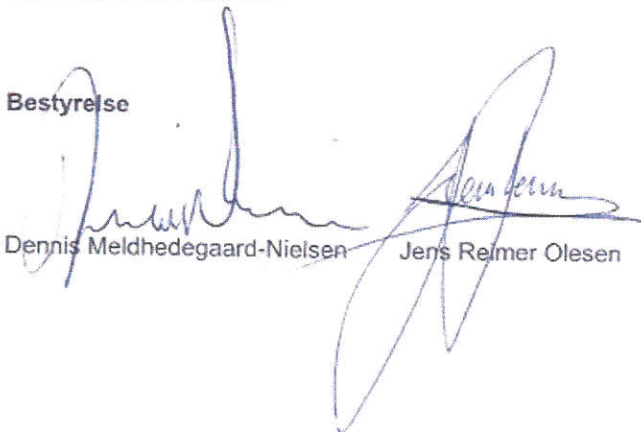 Bestyrelse
Dennis Meldhedegaard-Nielsen Jens Reimer Olesen